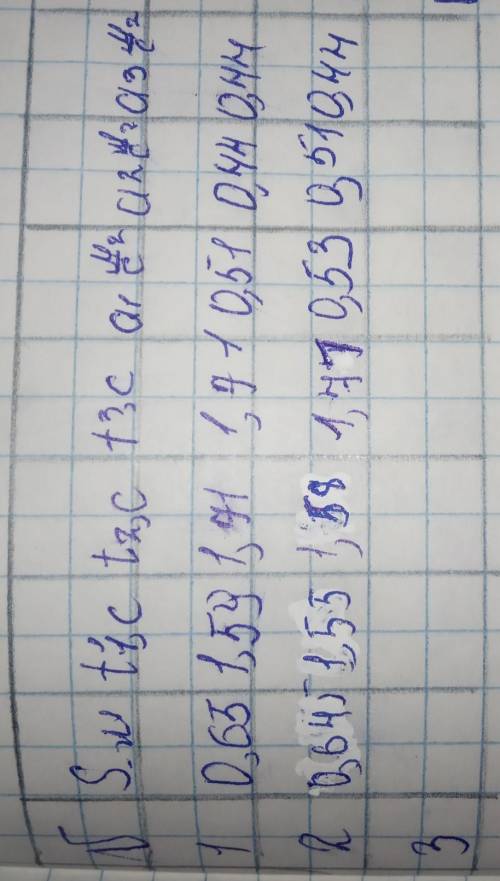 N S, м t1, с t2, с t3, с a1 м/с² a2 м/с² a3 м/с²
1 0,65 1,59 1,71 1,71 0,51 0,44 0,44
2 0,645 1,55 1,58 1,71 0,53 0,51 0,44
3